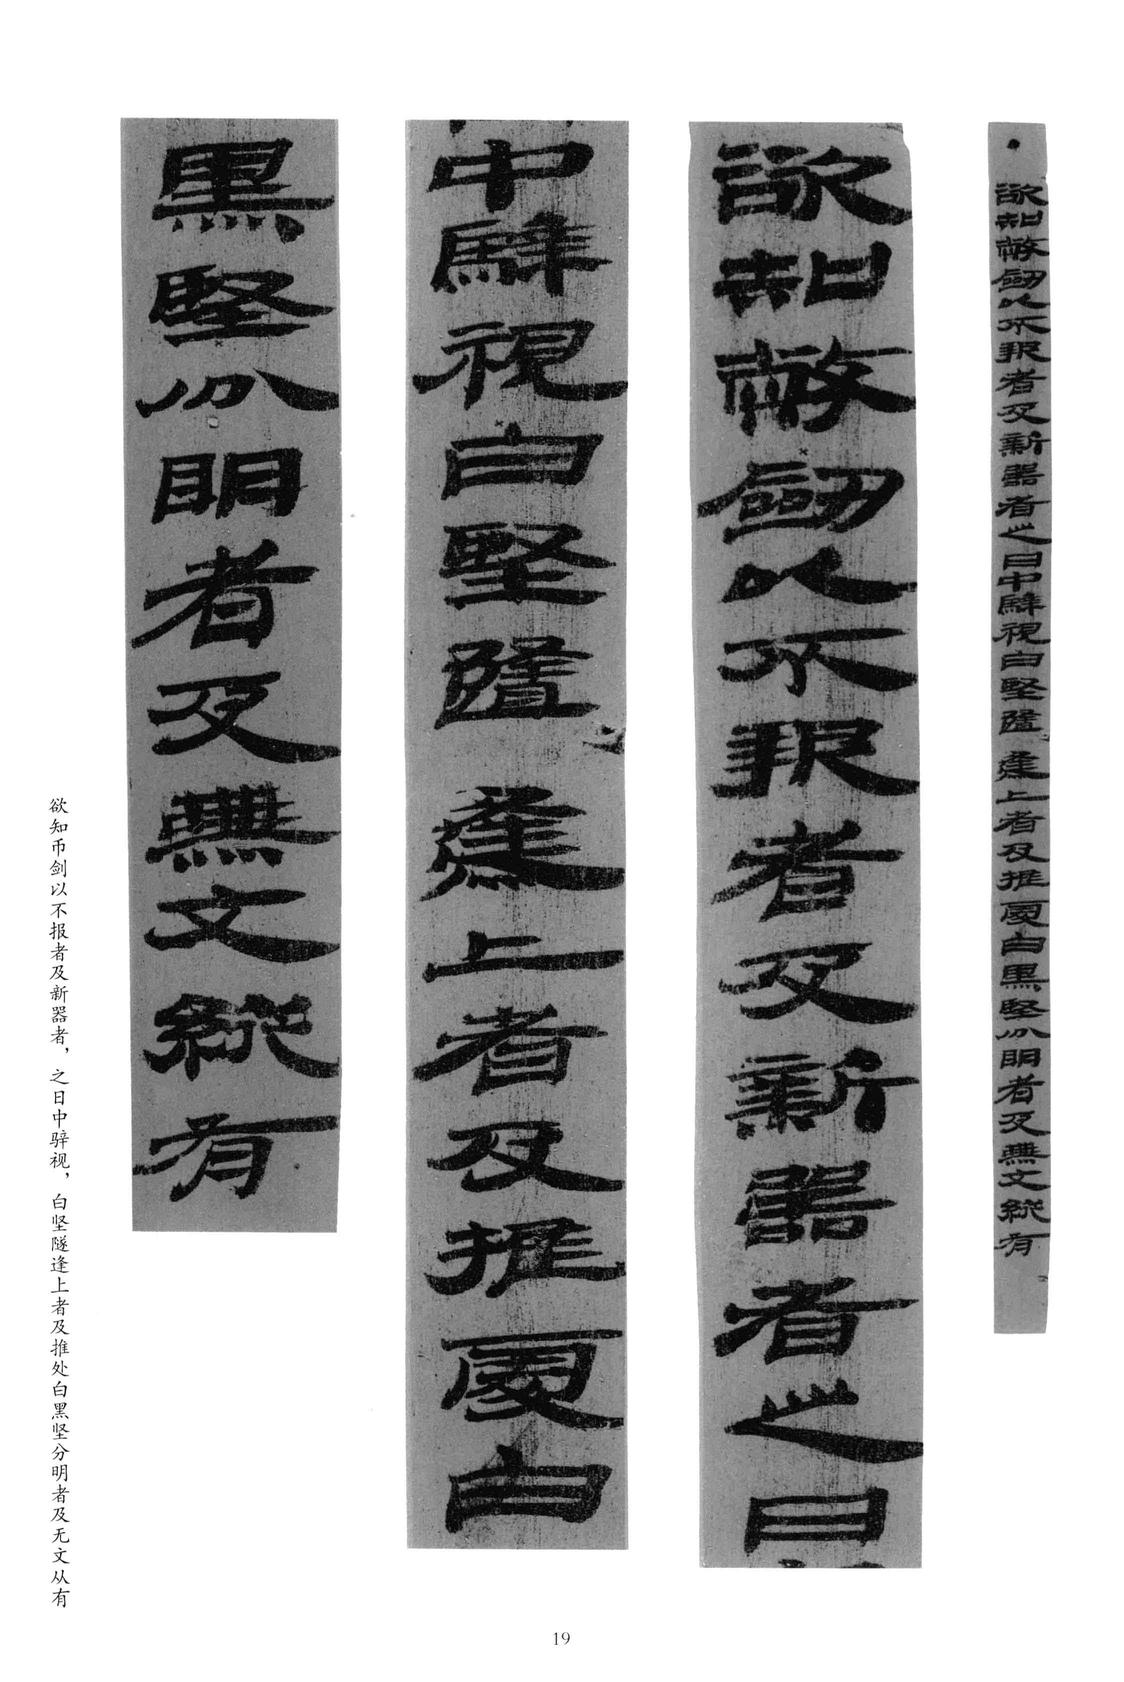 ·欲知幣劒以不報者及新器者之日中騂視白堅隨逢上者及推處白黑堅分明者及無文縱有
欲知幣劒以不報者及新器者之日
中騂視白堅隨逢上者及推處白
黑堅分明者及無文縱有
欲知币剑以不报者及新器者，之日中骍视，白坚隧逢上者及推处白黑坚分明者及无文从有
19